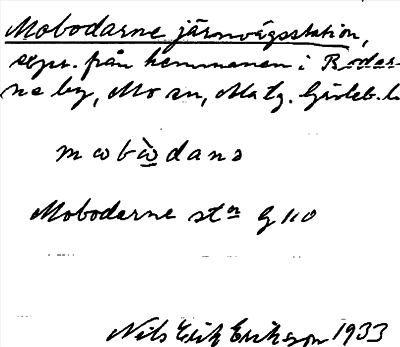 Mobodarne järnvägsstation,
expr. från hemmanen i Bodar-
ne by, Mo sn, Mo tg. Gävleb. l.
mωbὼdanə
Mobodarne stn G 110
Nils Erik Erikson 1933